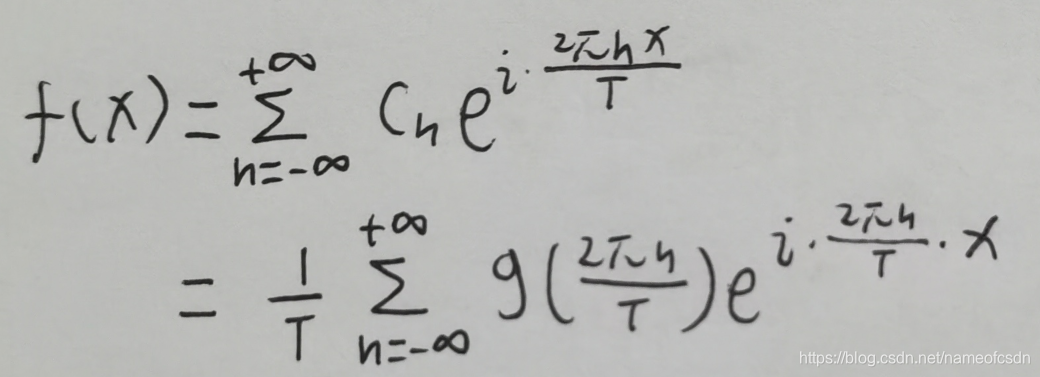 f(x) = \sum_{n=-\infty}^{+\infty} C_n e^{i \cdot \frac{2\pi n x}{T}}
= \frac{1}{T} \sum_{n=-\infty}^{+\infty} g(\frac{2\pi n}{T}) e^{i \cdot \frac{2\pi n}{T} \cdot x}
https://blog.csdn.net/nameofcsdn